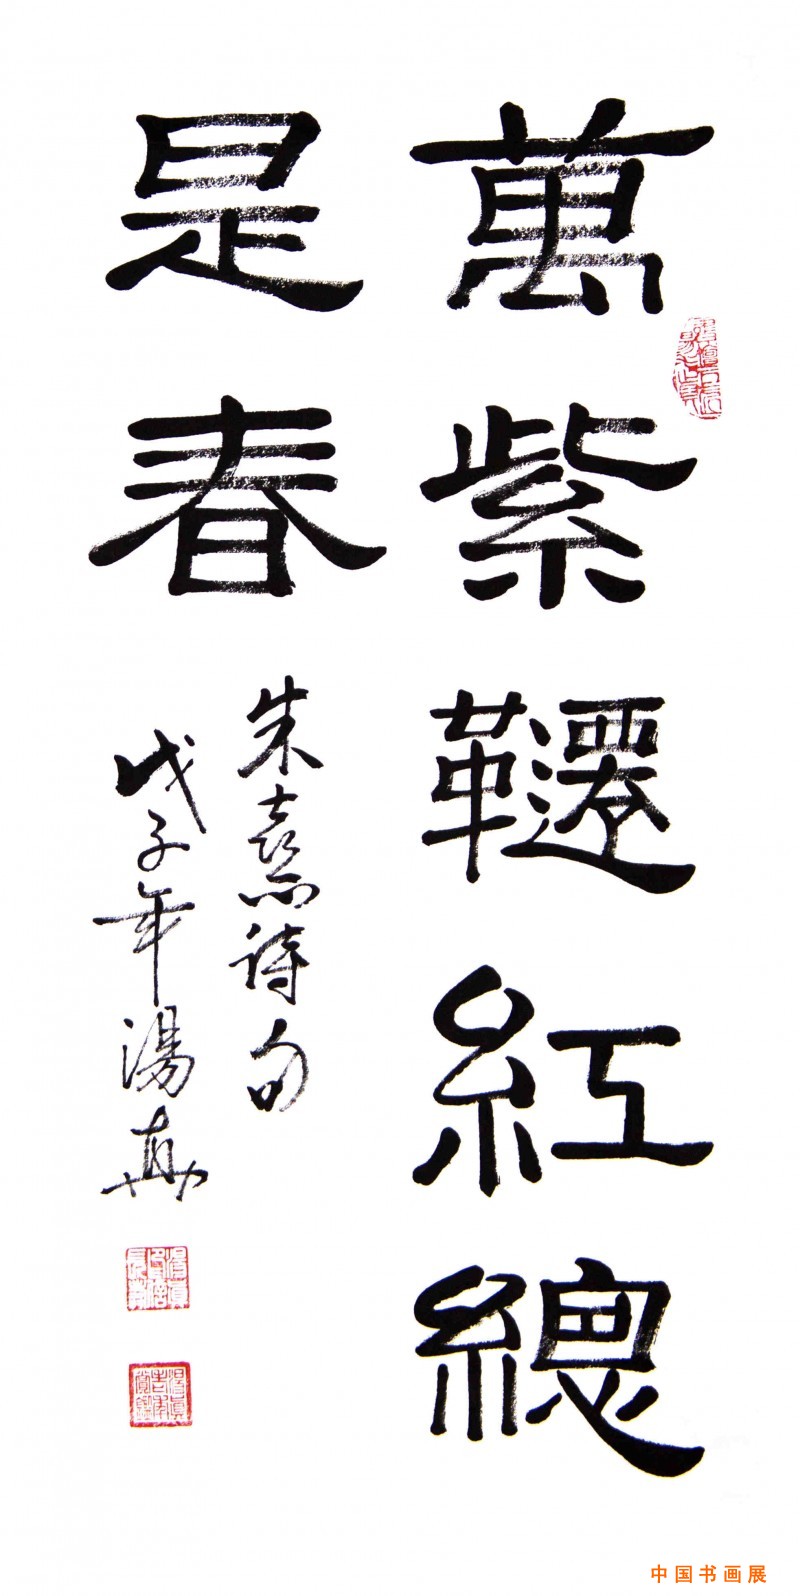 萬紫韆紅總
是春
朱熹詩句
戊子年湯真
中国书画展